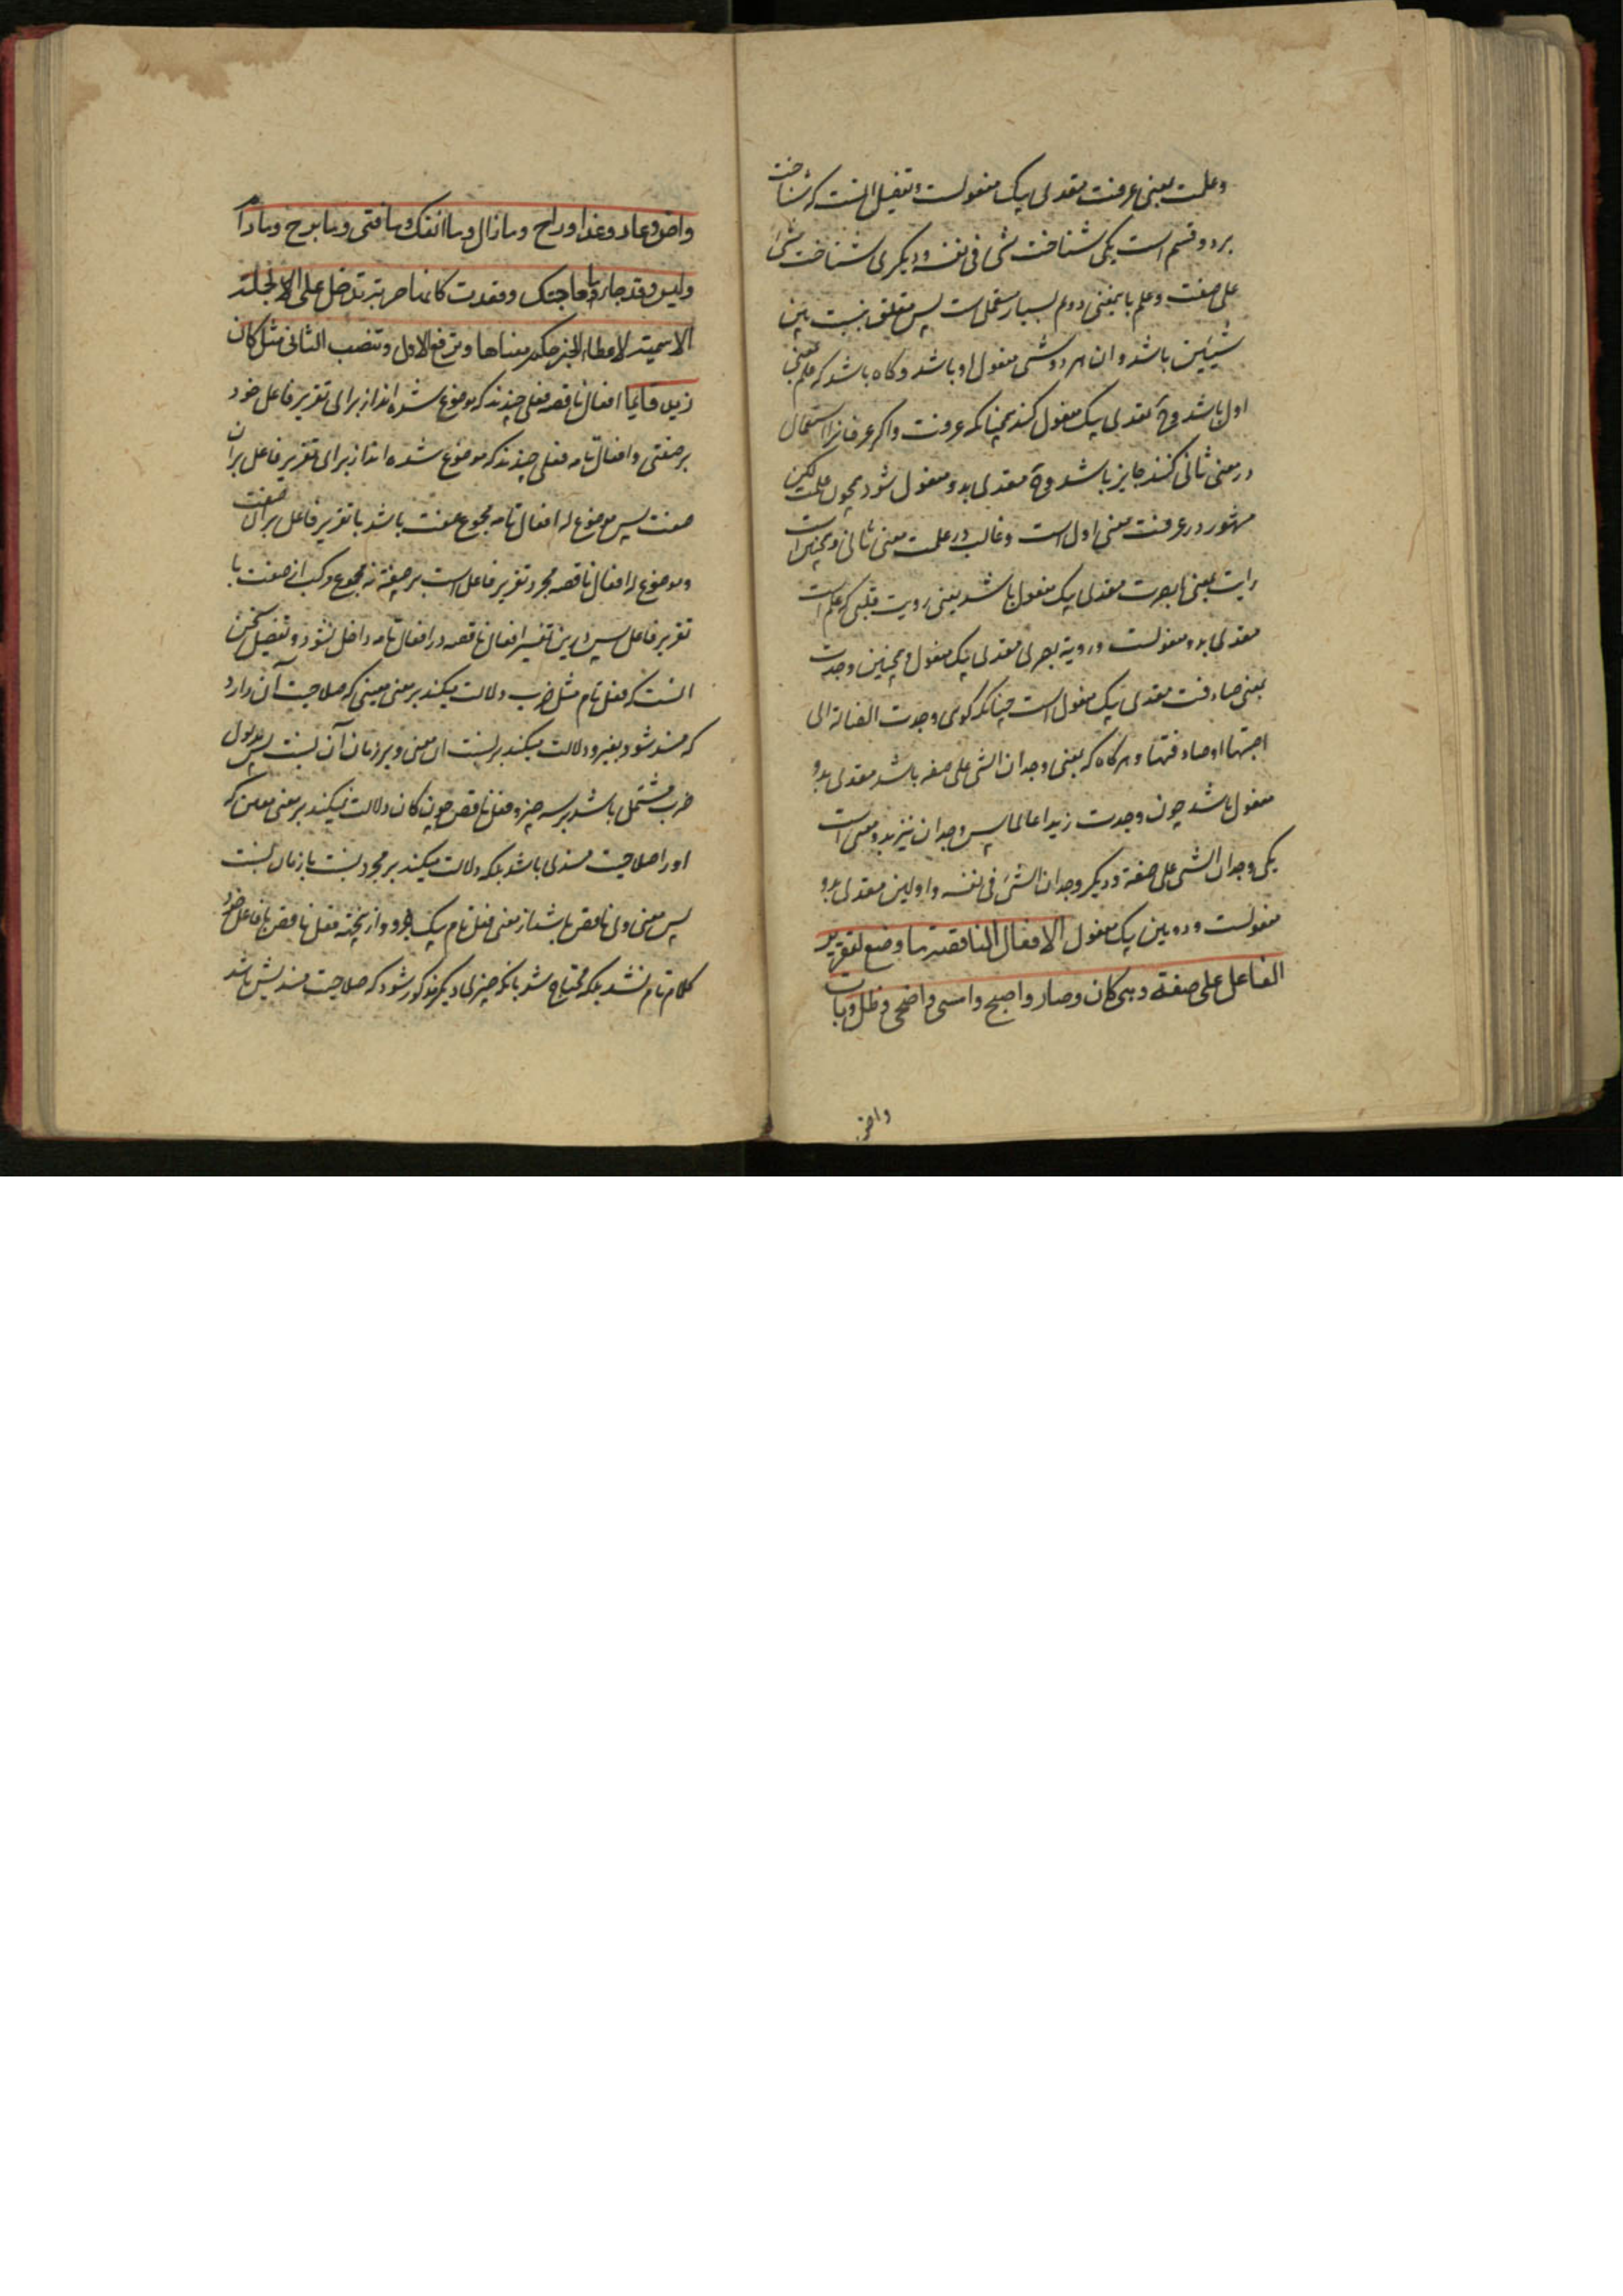 وعلمت بمعنی عرفت متعدی بیک مفعولست و تفصیل آنست که شناخت
بر دو قسم است یکی شناخت شی فی نفسه و دیگری شناخت شی
علی صفت و علم بامعنی دوم بسیار مستعمل است پس متعلق نسبت بین
شیئین باشد و آن هر دو شی مفعول او باشد و گاه باشد که علم بمعنی
اول باشد وح تعدی بیک مفعول کند همچنانکه عرفت و اگر عرفانرا استعمال
در معنی ثانی کنند جایز باشد وح متعدی بدو مفعول شود همچون علمت لیکن
مشهور در عرفت معنی اول است و غالب در علمت معنی ثانی و همچنین است
رایت بمعنی ابصرت متعدی بیک مفعول باشد یعنی رویت قلبی که علم است
متعدی بدو مفعولست و رویة بصری متعدی بیک مفعول و همچنین وجدت
بمعنی صادفت متعدی بیک مفعول است چنانکه گوئی وجدت الضالة ای
اصبتها او صادفتها و هرگاه که بمعنی وجدان الشی علی صفه باشد متعدی بدو
مفعول باشد چون وجدت زیدا عالما پس وجدان نیز بدو معنی است
یکی وجدان الشی علی صفة و دیگر وجدان الشئ فی نفسه و اولین متعدی بدو
مفعولست و دومین بیک مفعول الافعال الناقصة ما وضع لتقریر
الفاعل علی صفة وهی کان وصار واصبح وامسی واضحی وظل وبات
واض
واض وعاد وغدا وراح وما زال وما انفک وما فتی وما برح وما دام
ولیس وقد جاء ما جاءت حاجتک وقعدت کانها حربة تدخل علی الجملة
الاسمیة لاعطاء الخبر حکم معناها وترفع الاول وتنصب الثانی مثل کان
زید قایما افعال ناقصه فعلی چندند که موضوع شده اند از برای تقریر فاعل خود
بر صفتی و افعال تامه فعلی چندند که موضوع شده اند از برای تقریر فاعل بران
صفت پس موضوع له افعال تامه مجموع صفت باشد با تقریر فاعل بران صفت
و موضوع له افعال ناقصه مجرد تقریر فاعل است بر صفة نه مجموع مرکب از صفت با
تقریر فاعل پس درین تفسیر افعال ناقصه در افعال تامه داخل نشود و تفصیل سخن
آنست که فعل تام مثل ضرب دلالت میکند بر معنی معینی که صلاحیت آن دارد
که مسند شود بغیر و دلالت میکند بر نسبت آن معنی و بر زمان آن نسبت پس مدلول
ضرب مشتمل باشد بر سه چیز و فعل ناقص چون کان دلالت نمیکند بر معنی معین که
او را صلاحیت مسندی باشد بلکه دلالت میکند بر مجرد نسبت با زمان نسبت
پس معنی ولی ناقص باشد از معنی فعل تام بیک جزو و ازینجهة فعل ناقص با فاعل خود
کلام تام نشد بلکه محتاج شد بانکه چیزی دیگر مذکور شود که صلاحیت مسندیش باشد